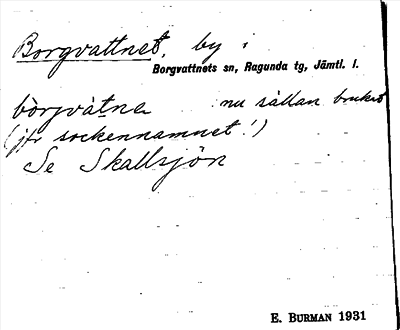 Borgvattnet, by i
Borgvattnets sn, Ragunda tg, Jämtl. l.
bòrgvàtnɐ nu sällan brukat
(jfr sockennamnet!)
Se Skallsjön
E. BURMAN 1931